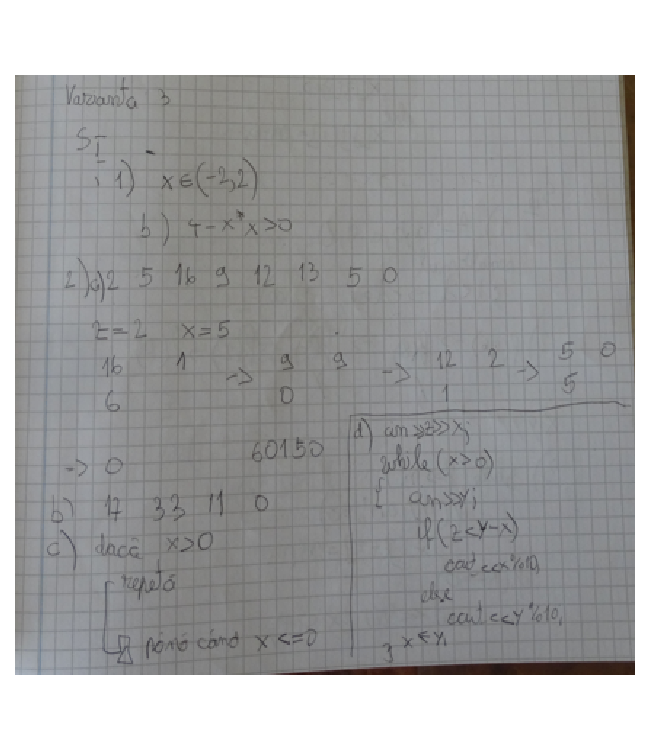 Varianta 3
S I
1) x ∈ (-2,2)
b) 4 - x*x > 0
2) a) 2 5 16 9 12 13 5 0
z = 2 x = 5
16 1 -> 9 9 -> 12 2 -> 5 0
6 0 1 5
-> 0 60150
b) 17 33 11 0
c) dacă x>0
repetă
până când x <= 0
d) cin>>z>>x;
while (x>0)
{ cin>>y;
if (z<y-x)
cout<<x%10;
else
cout<<y%10;
x=y;
}